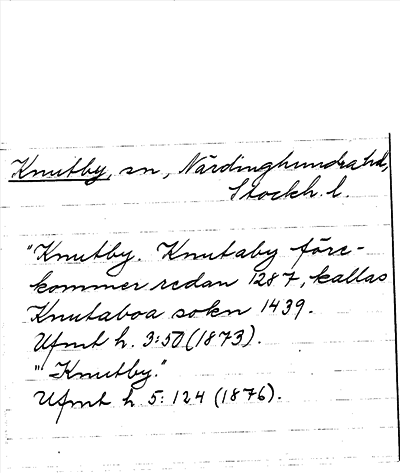 Knutby, sn, Närdinghundra hd,
Stockh. l.
"Knutby. Knutaby före-
kommer redan 1287, kallas
Knutaboa sokn 1439.
Ufmt h. 3:50 (1873).
" Knutby."
Ufmt h. 5:124 (1876).